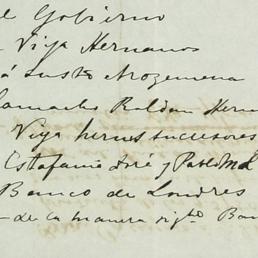 el Gobierno
Vega Hermanos
á Justo Arosemena
Camacho Roldan Herm
Vega hermos sucesores
Estafania José y Pablo
Banco de Londres
de la manera sigte Ban